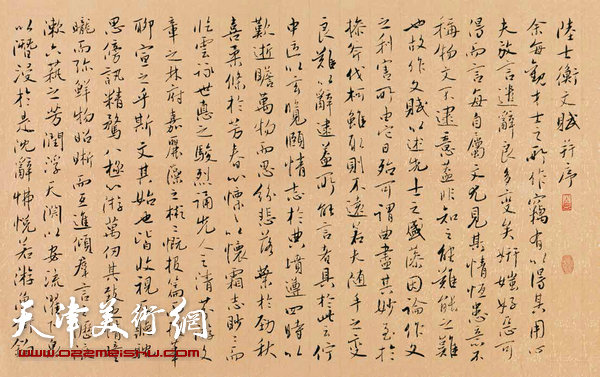 陸士衡文賦并序
余每觀才士之所作竊有以得其用心
夫放言遣辭良多變矣妍媸好惡可
得而言每自屬文尤見其情恒患意不
稱物文不逮意蓋非知之難能之難
也故作文賦以述先士之盛藻因論作文
之利害所由它日殆可謂曲盡其妙至於
操斧伐柯雖取則不遠若夫隨手之變
良難以辭逮蓋所能言者具於此云佇
中區以玄覽頤情志於典墳遵四時以
歎逝瞻萬物而思紛悲落葉於勁秋
喜柔條於芳春心懍々以懷霜志眇々而
臨雲詠世德之駿烈誦先人之清芬游文
章之林府嘉麗藻之彬々慨投篇而援筆
聊宣之乎斯文其始也皆收視反聽耽
思傍訊精騖八極心游萬仞其致也情曈
曨而彌鮮物昭晰而互進傾群言之瀝
漱六藝之芳潤浮天淵以安流濯下泉
以潛浸於是沈辭怫悅若游魚
天津美術網
www.022meishu.com